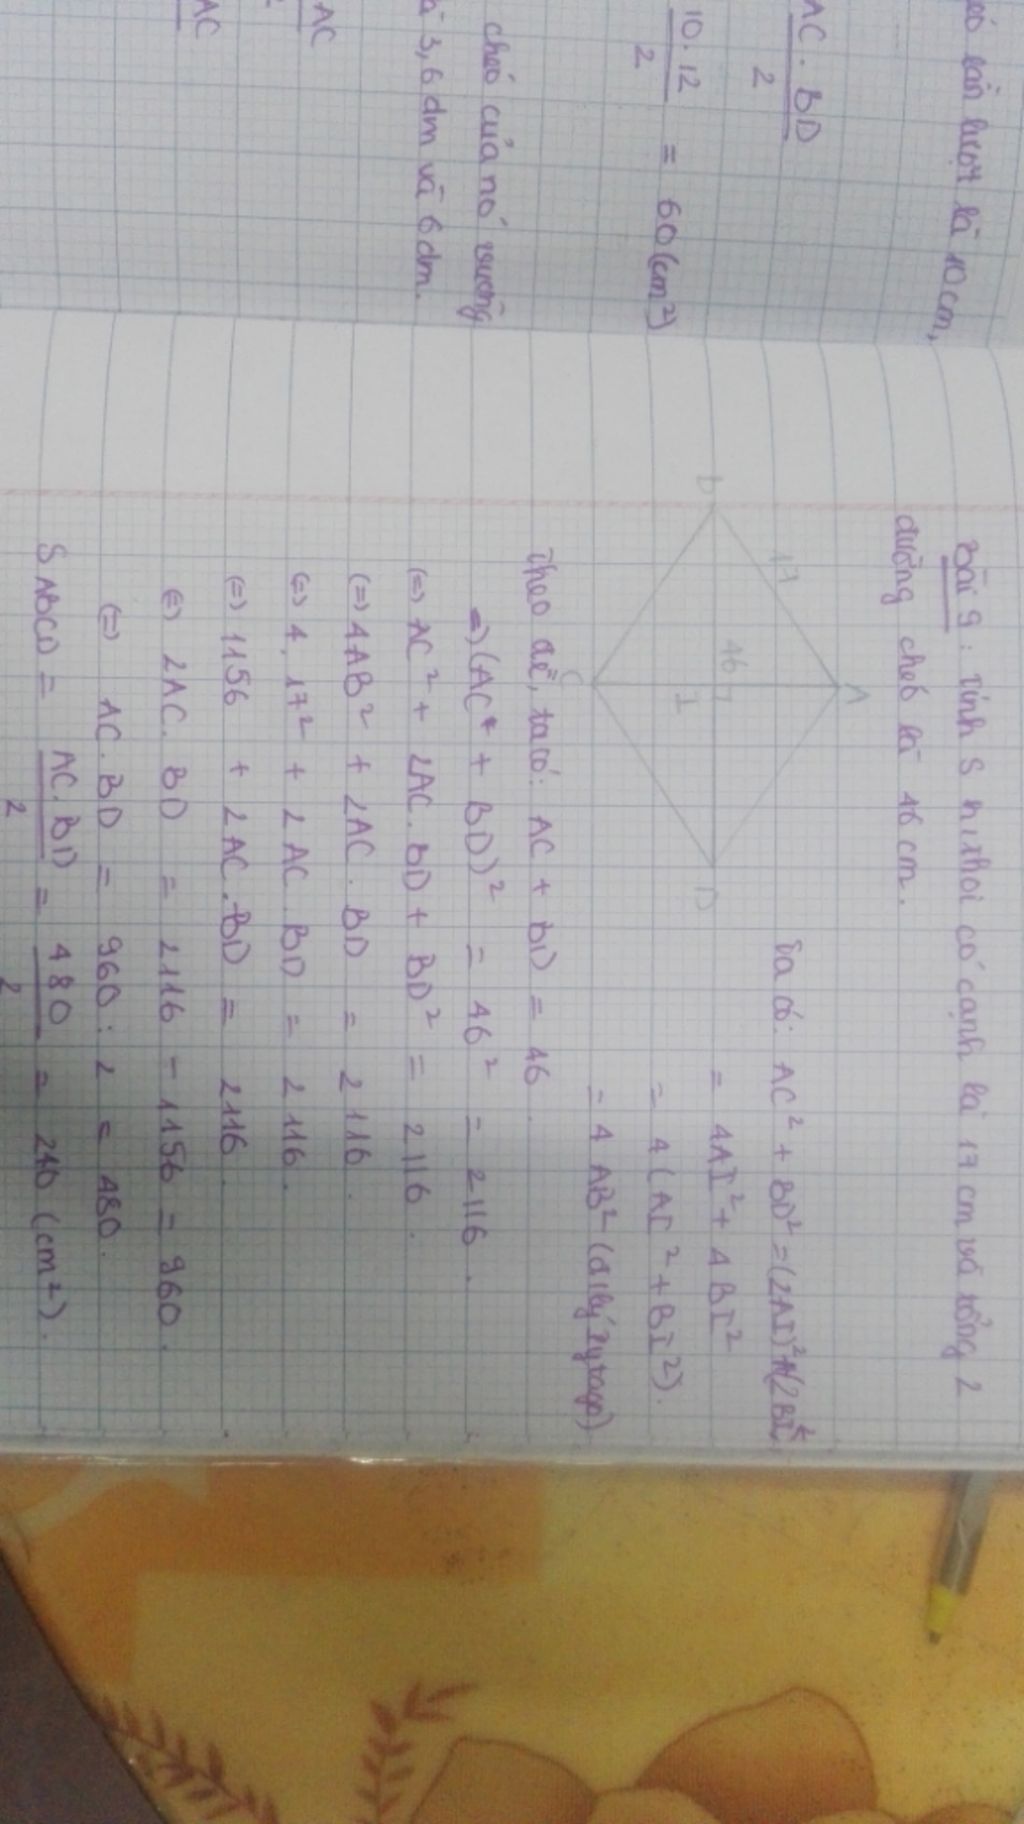 lần lượt là 10cm,
AC . BD
2
10.12 = 60 (cm²)
2
chéo của nó vuông
à 3,6 dm và 6 dm.
AC
AC
Bài 9: Tính S h.thoi có cạnh là 17 cm và tổng 2
đường chéo là 46 cm.
A
17
B
46
I
D
C
Ta có: AC² + BD² = (2AI)² + (2BI)²
= 4AI² + 4BI²
= 4(AI² + BI²).
= 4AB² (đ lý Pytago)
Theo đề, ta có: AC + BD = 46.
=> (AC + BD)² = 46² = 2116.
(=) AC² + 2AC.BD + BD² = 2116.
(=) 4AB² + 2AC.BD = 2116.
(=) 4.17² + 2AC.BD = 2116.
(=) 1156 + 2AC.BD = 2116.
(=) 2AC.BD = 2116 - 1156 = 960.
(=) AC.BD = 960 : 2 = 480.
S ABCD = AC.BD = 480 = 240 (cm²).
2 2